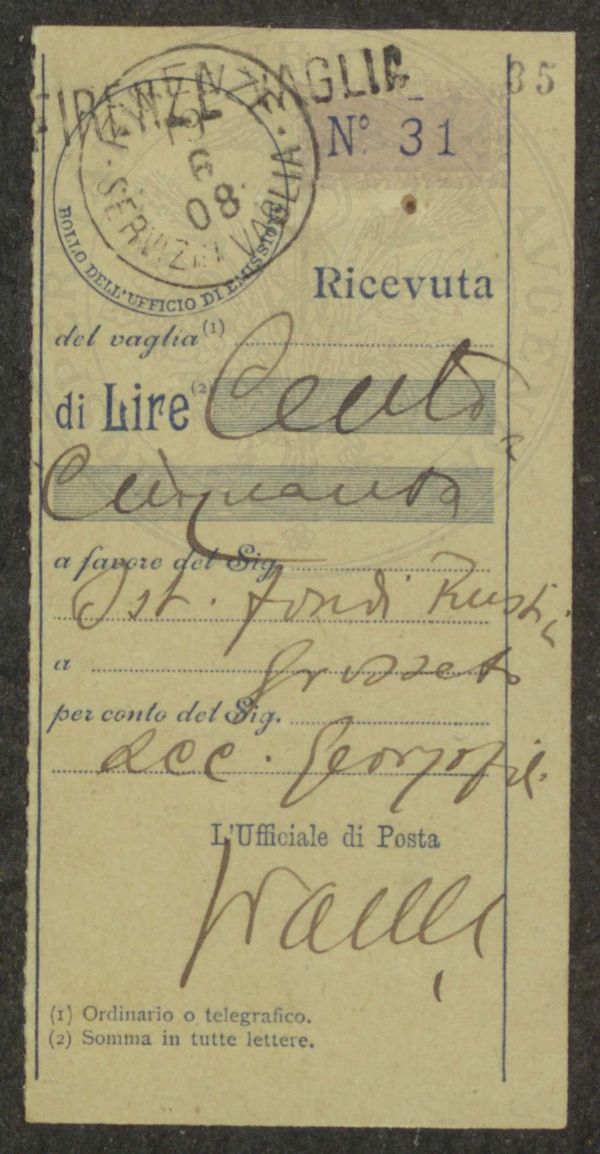 FIRENZE VAGLIA
35
FIRENZE
6
08
SERVIZI VAGLIA
N.° 31
BOLLO DELL'UFFICIO DI EMISSIONE
Ricevuta
del vaglia (1)
di Lire (2) Cento
Cinquanta
a favore del Sig.
Ist. fondi Rustici
a Grosseto
per conto del Sig.
Acc. Georgofil.
L'Ufficiale di Posta
(1) Ordinario o telegrafico.
(2) Somma in tutte lettere.